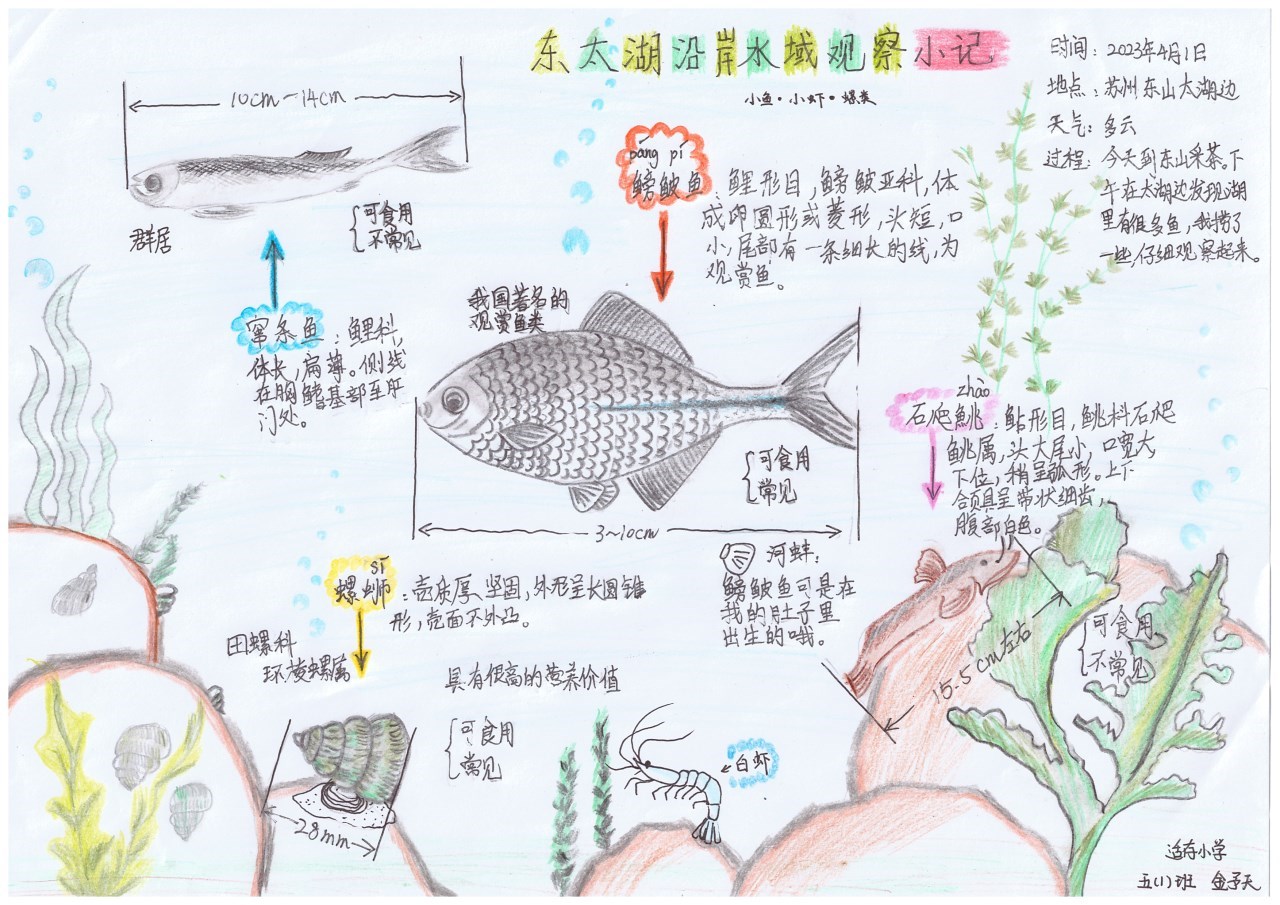 东太湖沿岸水域观察小记
小鱼·小虾·螺类
时间：2023年4月1日
地点：苏州东山太湖边
天气：多云
过程：今天到东山采茶。下
午在太湖边发现湖
里有很多鱼，我捞了
一些，仔细观察起来。
10cm-14cm
群居
可食用
不常见
窜条鱼：鲤科，
体长，扁薄。侧线
在胸鳍基部至肛
门处。
páng pí
鳑鲏鱼：鲤形目，鳑鲏亚科，体
成卵圆形或菱形，头短，口
小，尾部有一条细长的线，为
观赏鱼。
我国著名的
观赏鱼类
可食用
常见
3~10cm
zhào
石爬鮡：鲇形目，鮡科石爬
鮡属，头大尾小，口宽大
下位，稍呈弧形。上下
颌具呈带状细齿，
腹部白色。
15.5cm左右
可食用
不常见
河蚌：
鳑鲏鱼可是在
我的肚子里
出生的哦。
sī
螺蛳：壳质厚、坚固，外形呈长圆锥
形，壳面不外凸。
田螺科
环棱螺属
具有很高的营养价值
可食用
常见
28mm
白虾
适存小学
五(1)班 金予天